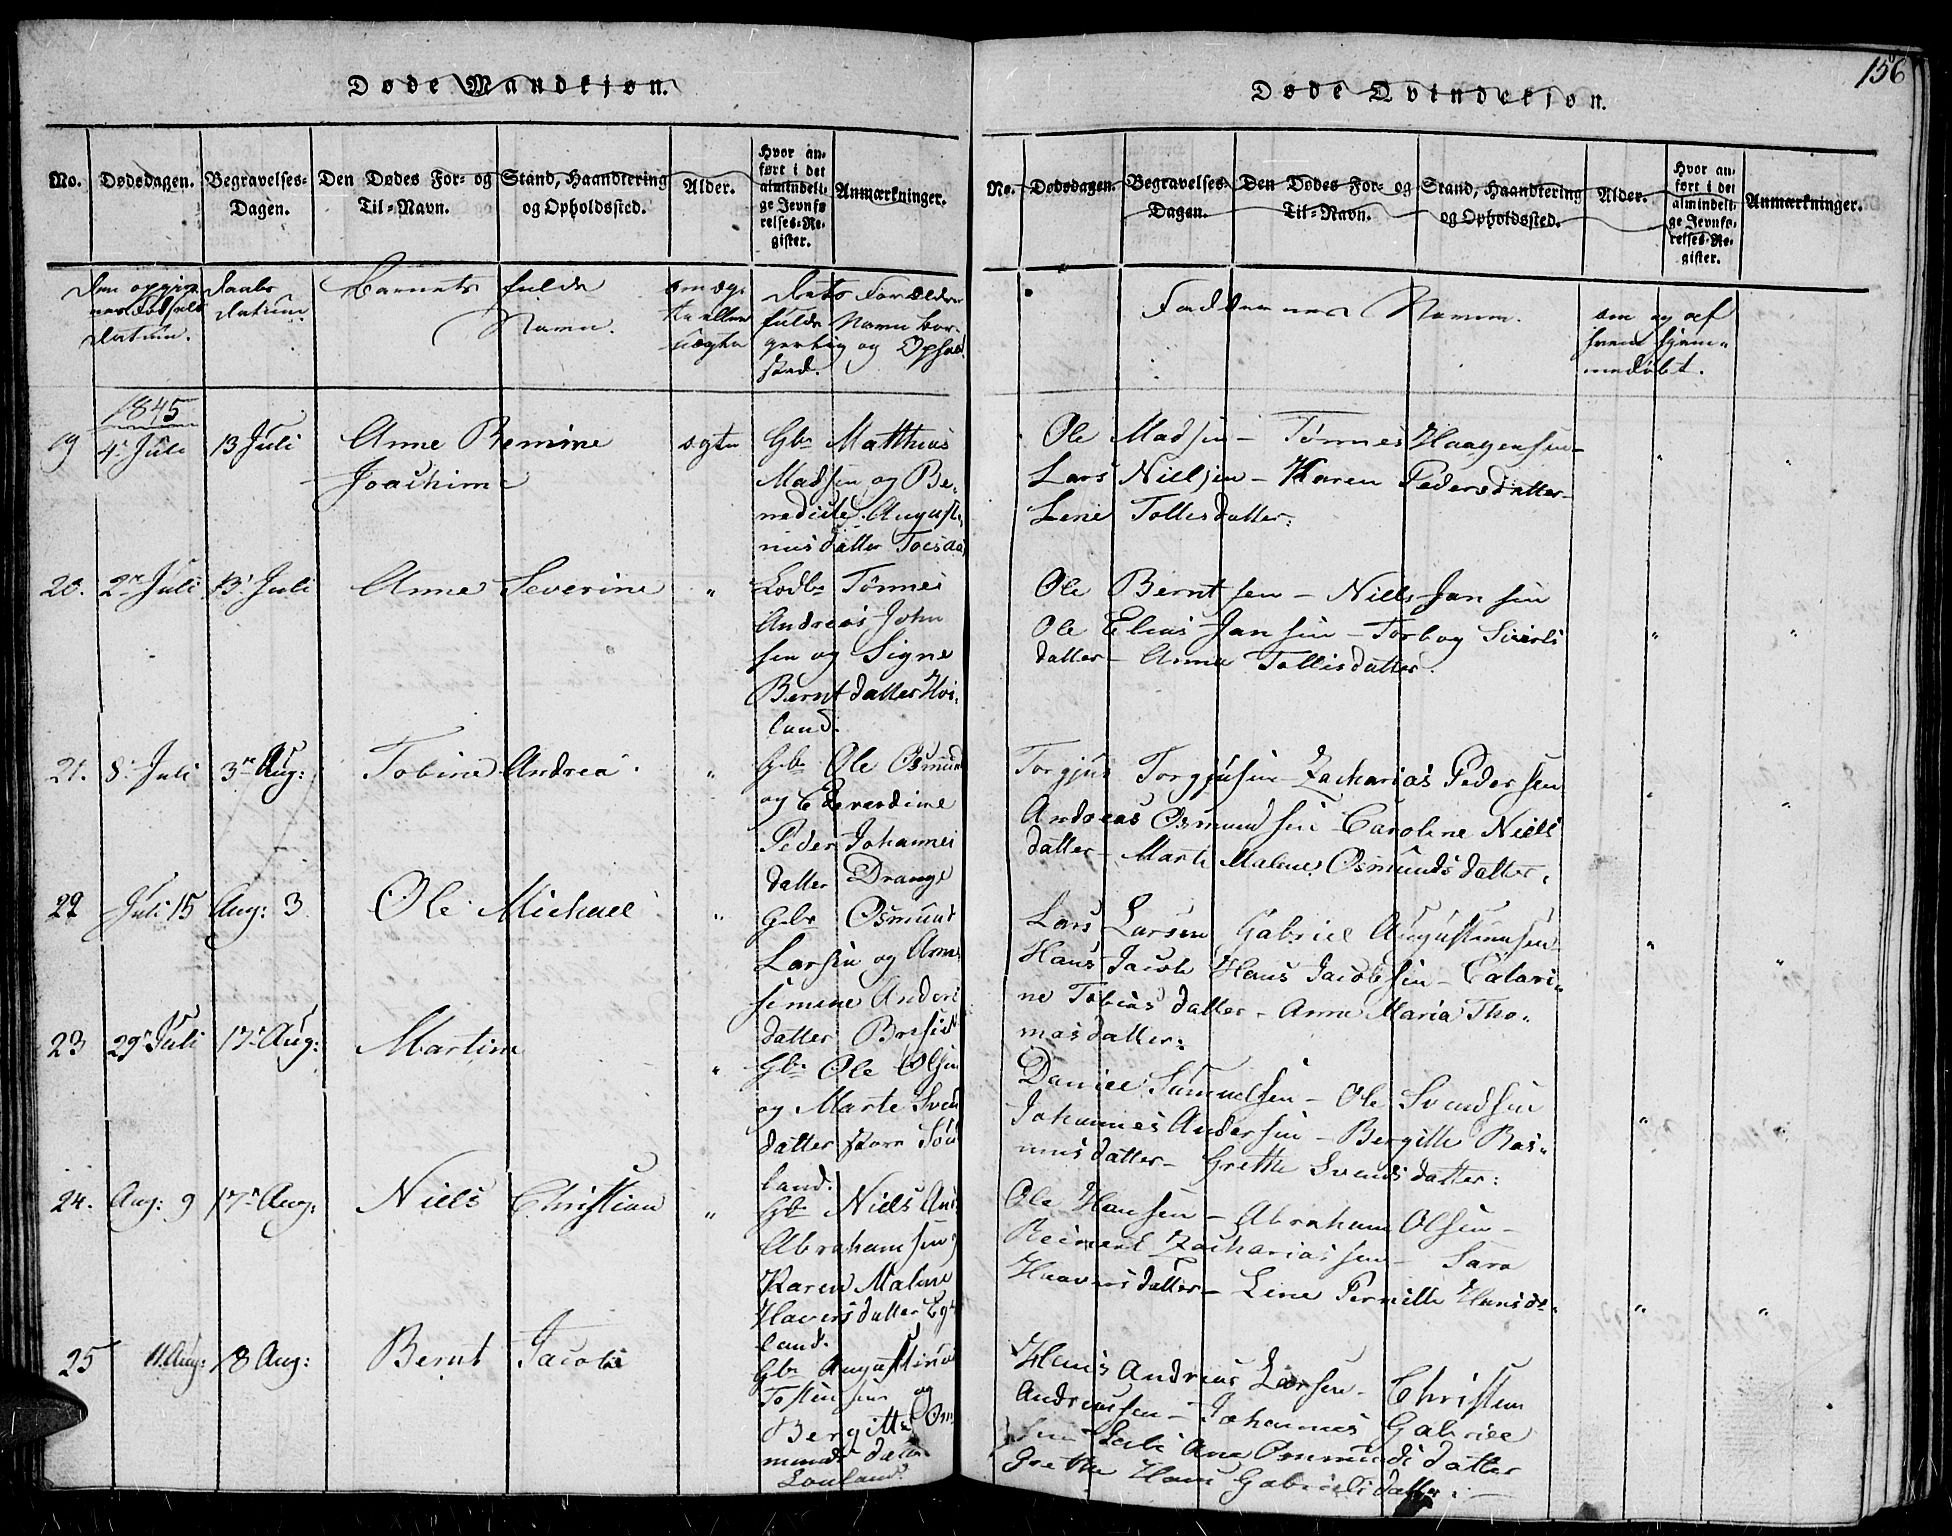 Døde Mandkjøn.
No. Dødsdagen. Begravelses-Dagen. Den Dødes For- og Til-Navn. Stand, Haandtering og Opholdssted. Alder. Hvor anført i det almindelige Jevnførelses-Register. Anmærkninger.
Den opgivne Fødsels Datum.
Daabs Datum.
Barnets fulde
Navn.
om ægte eller uægte
Dets Forældres
fulde Navn bor-
gerlig og Ophold
sted.
1845
19 4. Juli 13 Juli Anne Bemine
Joachime
ægte
Gbr Matthias
Madsen og Be-
nedicte August-
nusdatter
20. 2n Juli 13. Juli Anne Severine "
Tønnes
Andreas John
sen og Signe
Berntdatter Høi-
land.
21. 8. Juli 3n Aug: Tobine Andrea. "
Gbr Ole Osmund
og Edevardine
Peder Johannes
datter Drange
22 Juli 15 Aug: 3 Ole Michael "
Gbr Osmund
Larsen og Anne
Simine Anders
datter
23 29n Juli 17n Aug: Martine "
Gbr Ole Olsen
og Marte Svends
datter
land.
24. Aug: 9 17n Aug: Niels Christian "
Gbr Niels And:
Abrahamsen
Karen Malene
Haversdatter Eg-
land.
25 11. Aug: 18 Aug: Bernt Jacob
Gbr Augustinus
Tostensen og
Bergitte Os-
munds datter
Døde Qvindekjøn.
156
No. Dødsdagen. Begravelses-Dagen. Den Dødes For- og Til-Navn. Stand, Haandtering og Opholdssted. Alder. Hvor anført i det almindelige Jevnførelses-Register. Anmærkninger.
Faddernes Navne.
om og af
hvem hjem-
medøbt.
Ole Madsen - Tønnes Haagensen -
Lars Nielsen - Karen Pedersdatter -
Lene Tollisdatter.
Ole Berntsen - Niels Jansen
Ole Elias Jansen - Torbog Siverts
datter - Anne Tollisdatter.
Torgjus Torgjusen - Zacharias Pedersen
Andreas Osmundsen - Caroline Niels
datter - Marte Malene Osmundsdatter.
Lars Larsen Gabriel Augustinusen
Hans Jacob Hans Jacobsen - Catari-
ne Tobiasdatter - Anne Maria Tho-
masdatter.
Daniel Samuelsen - Ole Svendsen
Johannes Andersen - Bergitte Ras-
musdatter - Grethe Svendsdatter:
Ole Hansen - Abraham Olsen -
Reinert Zachariassen - Sara
Haaversdatter - Line Pernille Hansd.
Hans Andreas Larsen - Christen
Andreassen - Johannes Gabriel
sen Ane Osmundsdatter
Grethe Hans Gabrielsdatter. -